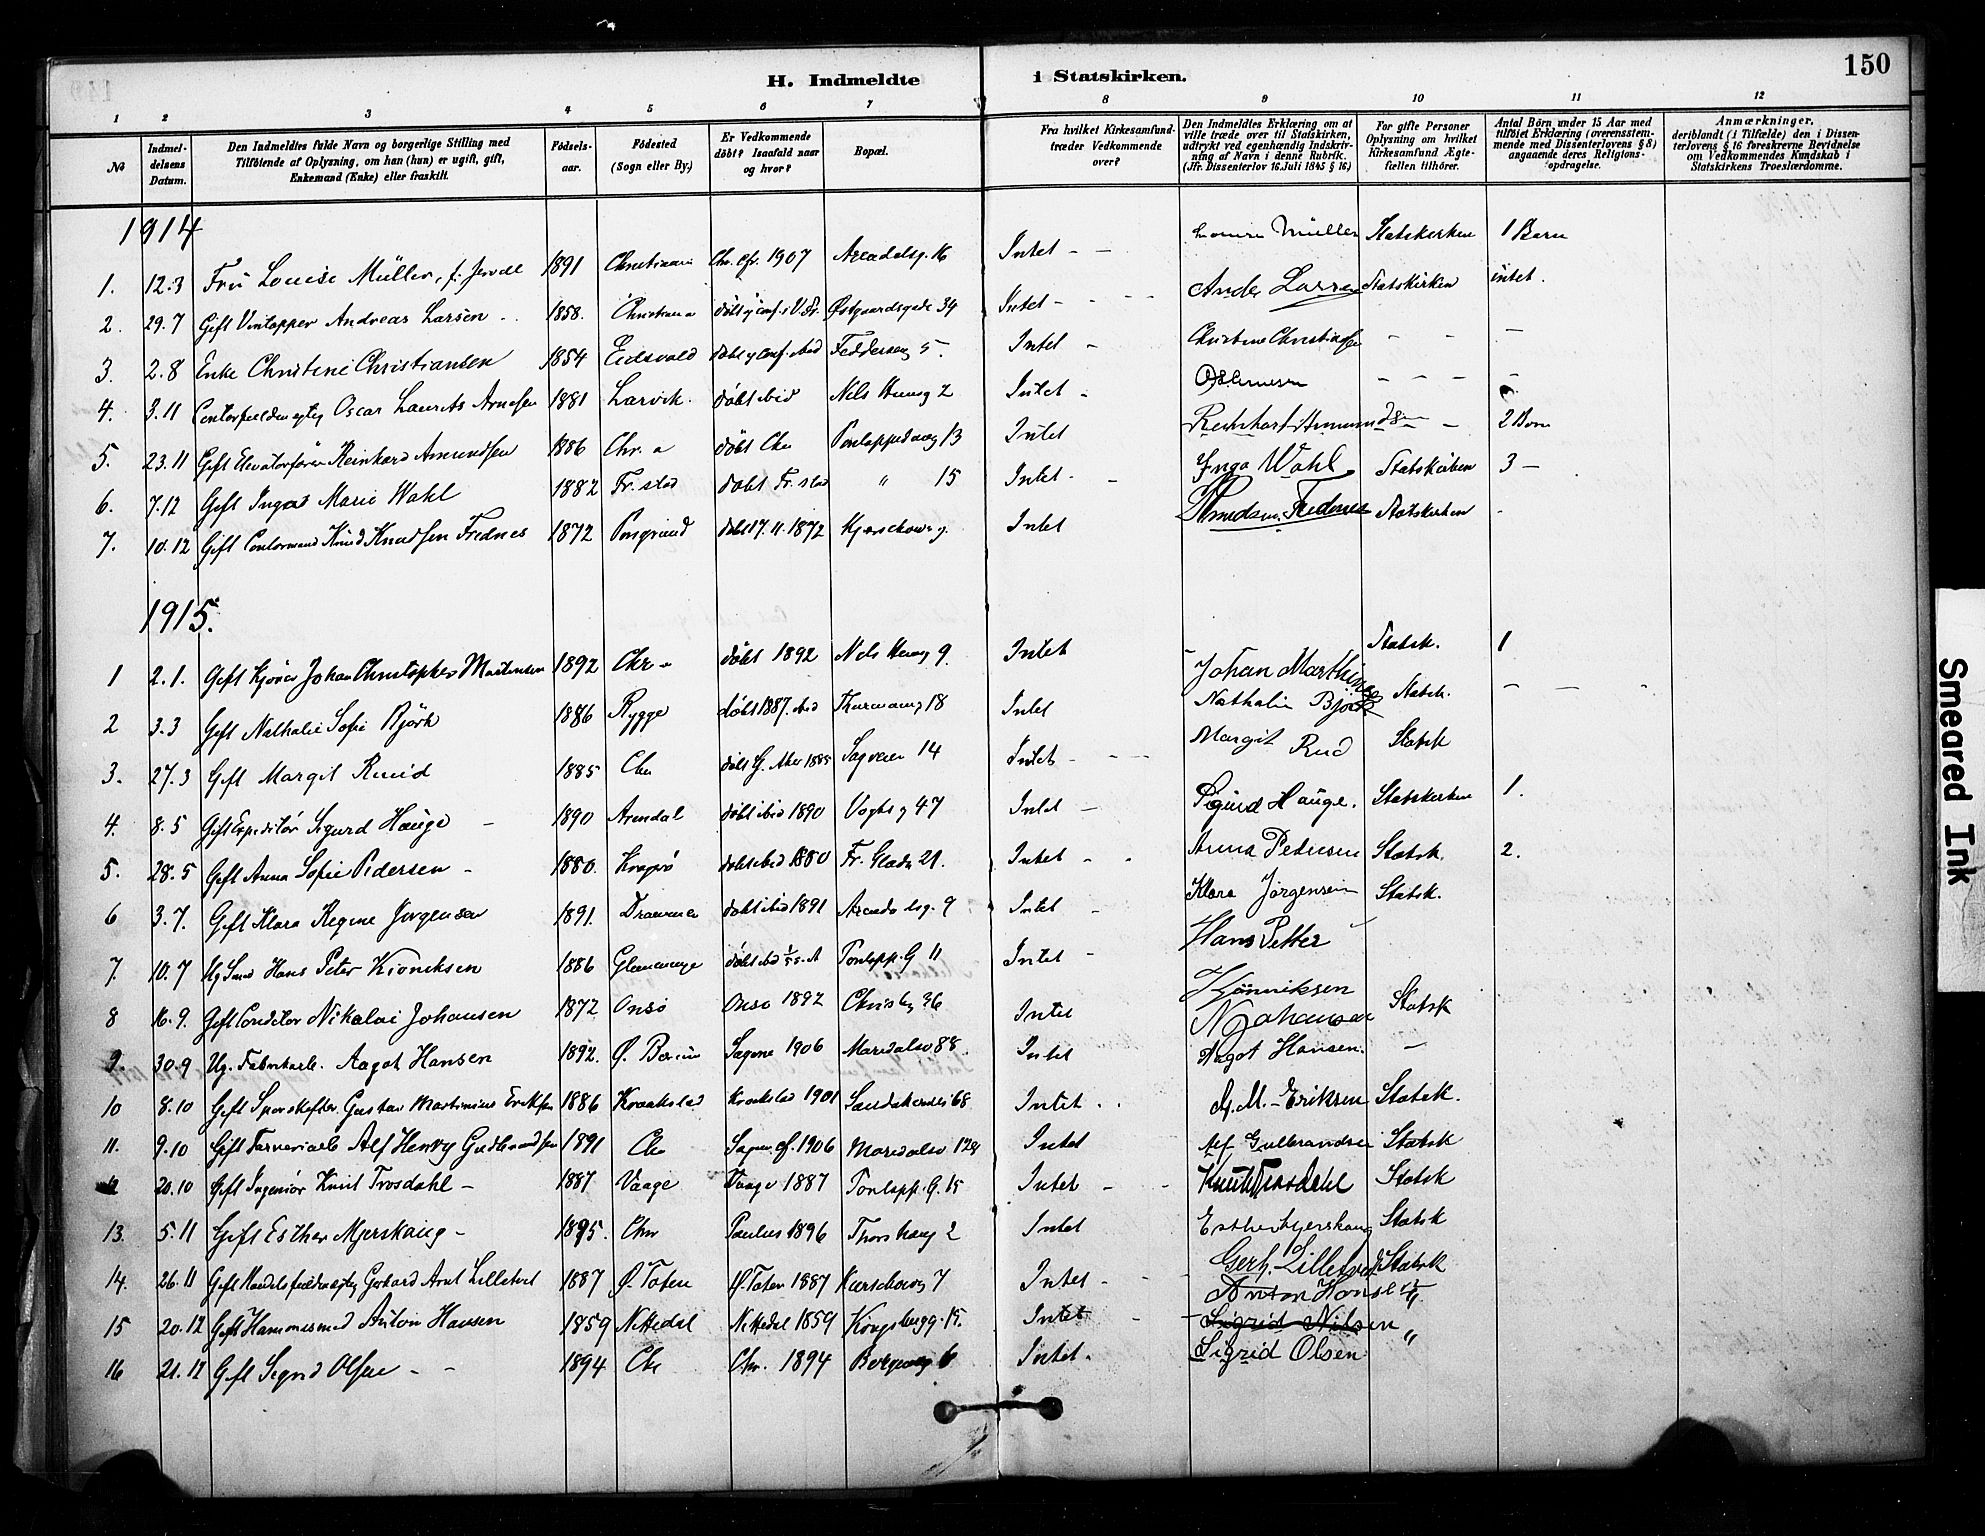 150
H. Indmeldte i Statskirken.
1 2 3 4 5 6 7 8 9 10 11 12
No
Indmeldelsens Datum.
Den Indmeldtes fulde Navn og borgerlige Stilling med
Tilföiende af Oplysning, om han (hun) er ugift, gift,
Enkemand (Enke) eller fraskilt.
Födselsaar.
Födested
(Sogn eller By.)
Er Vedkommende
döbt? Isaafald naar
og hvor?
Bopæl.
Fra hvilket Kirkesamfund
træder Vedkommende
over?
Den Indmeldtes Erklæring om at
ville træde over til Statskirken,
udtrykt ved egenhændig Indskrivning
af Navn i denne Rubrik.
(Jfr. Dissenterlov 16. Juli 1845 § 16)
For gifte Personer
Oplysning om hvilket
Kirkesamfund Ægtefællen
tilhörer.
Antal Börn under 15 Aar med
tilföiet Erklæring (overensstemmende
med Dissenterlovens § 8)
angaaende deres Religionsopdragelse.
Anmærkninger,
deriblandt (i Tilfælde) den i Dissenterlovens
§ 16 foreskrevne Bevidnelse
om Vedkommendes Kundskab i
Statskirkens Troeslærdomme.
1914
1. 12.3 Fru Louise Müller, f. 1891 Christiania Chr. cfr. 1907 Arendalsg. 16 Intet - - Müller Statskirken 1 Barn
2. 29.7 Gift Vintapper Andreas Larsen - 1858. Christiania Østgaardsgade 34 Intet - - - Larsen Statskirken intet.
3. 2.8 Enke Christine Christiansen 1854 Eidsvold döbt og conf. ibid Feddersensg 5. Intet - Christine Christiansen - - -
4. 3.11 Oscar Laurits Arnesen 1881 Larvik. döbt ibid Nels Hennsg 2 Intet - - - - - -
5. 23.11 Gift Elevatorfører Reinhard Amundsen 1886 Chr.a döbt Chr 13 Intet Reinhart Amundsen - 2 Born
6. 7.12 Gift Inga Marie Wahl 1882 Fr.stad döbt Fr.stad " 15 Intet - - Inga Wahl Statskirken 3 -
7. 10.12 Gift Contormand Knud Knudsen Frednes 1872 Porsgrund döbt 17.11.1872 Kjerschowsg. Intet Statskirken -
1915.
1 2.1. Gift Kjører Johan Christopher Martinsen 1892 Chr.a döbt 1892 Nels Hennsg 9. Intet Johan Marthinsen Statsk. 1
2 3.3 Gift Nathalie Sofie Bjørk 1886 Rygge döbt 1887. ibid Thurmannsg 18 Intet Nathalie Bjørk Statsk. - - -
3. 27.3 Gift Margit Ruud 1885 Chr döbt G. Aker 1885 Sagveien 14 Intet - - - Margit Rud Statsk
4. 8.5 Gift Expeditör Sigurd Hauge - 1890 Arendal döbt ibid 1890 Vogtsg 47 Intet - Sigurd Hauge. Statskirken 1.
5. 28.5 Gift Anna Sofie Pedersen - 1880. Kragerö döbt ibid 1880 Fr. Gladsg 21. Intet - - Anna Pedersen Statsk. 2.
6 3.7. Gift Klara Regine Jørgensen 1891. Drammen döbt ibid 1891 Arendalsg. 9 Intet - Klara Jørgensen Statsk.
7. 10.7 Ug Hans Peter Kiöneksen 1886 Glemminge Tontapp.G 11 Intet - Hans Petter Kjönniksen
8 16.9. Gift Conditor Nikolai Johansen 1872 Onsö Onsö 1892 Chris 36 Intet N Johansen Statsk
9. 30.9 Ug. Fabrikarb. Aagot Hansen 1892. Ø. Bærum Sagene 1906 Maridalsv 88. Intet Aagot Hansen. -
10 8.10 Gift Sporskifter Gustav Martinius Eriksen 1886 Kraakstad Kraakstad 1901 Sandakerveien 68 Intet . . G. M. Eriksen Statsk.
11. 9.10 Gift Farveriarb Alf Henry Gudbrandsen 1891 Chr Sagene cf. 1906 Maridalsv 128 Intet Alf Gulbrandsen Statsk
12 20.10 Gift Ingeniør Knut Trosdahl - 1887 Vaage Vaage 1887 Tontapp.G. 15 Intet - - Knut Trosdahl Statsk
13. 5.11 Gift Esther Myerskaug - 1895. Chr Paulus 1896 Thorshaug 2 Intet Esther Myerskaug Statsk
14. 26.11 Gift Gerhard Arnt Lilletvet 1887 Ø. Toten Ø. Toten 1887 Kierschowsg 7 Intet - - Gerh. Lilletvedt Statsk
15 20.12 Gift Anton Hansen 1859 Nittedal Nittedal 1859 Kongsbergg. 15. Intet - Anton Hansen "
Sigrid Nilsen
16 21.12 Gift Sigrid Olsen - - 1894 Chr Chr. 1894 Bergensg 6 Intet - Sigrid Olsen "
Smeared Ink